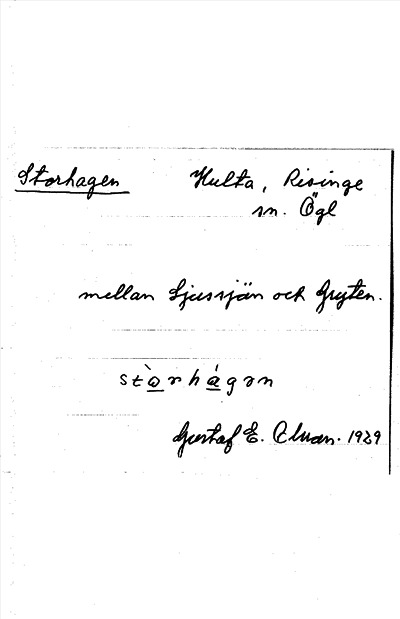 Storhagen Hulta, Risinge
sn. Ögl
mellan Ljussjän och Gryten.
stòrhágən
Gustaf E. 1929